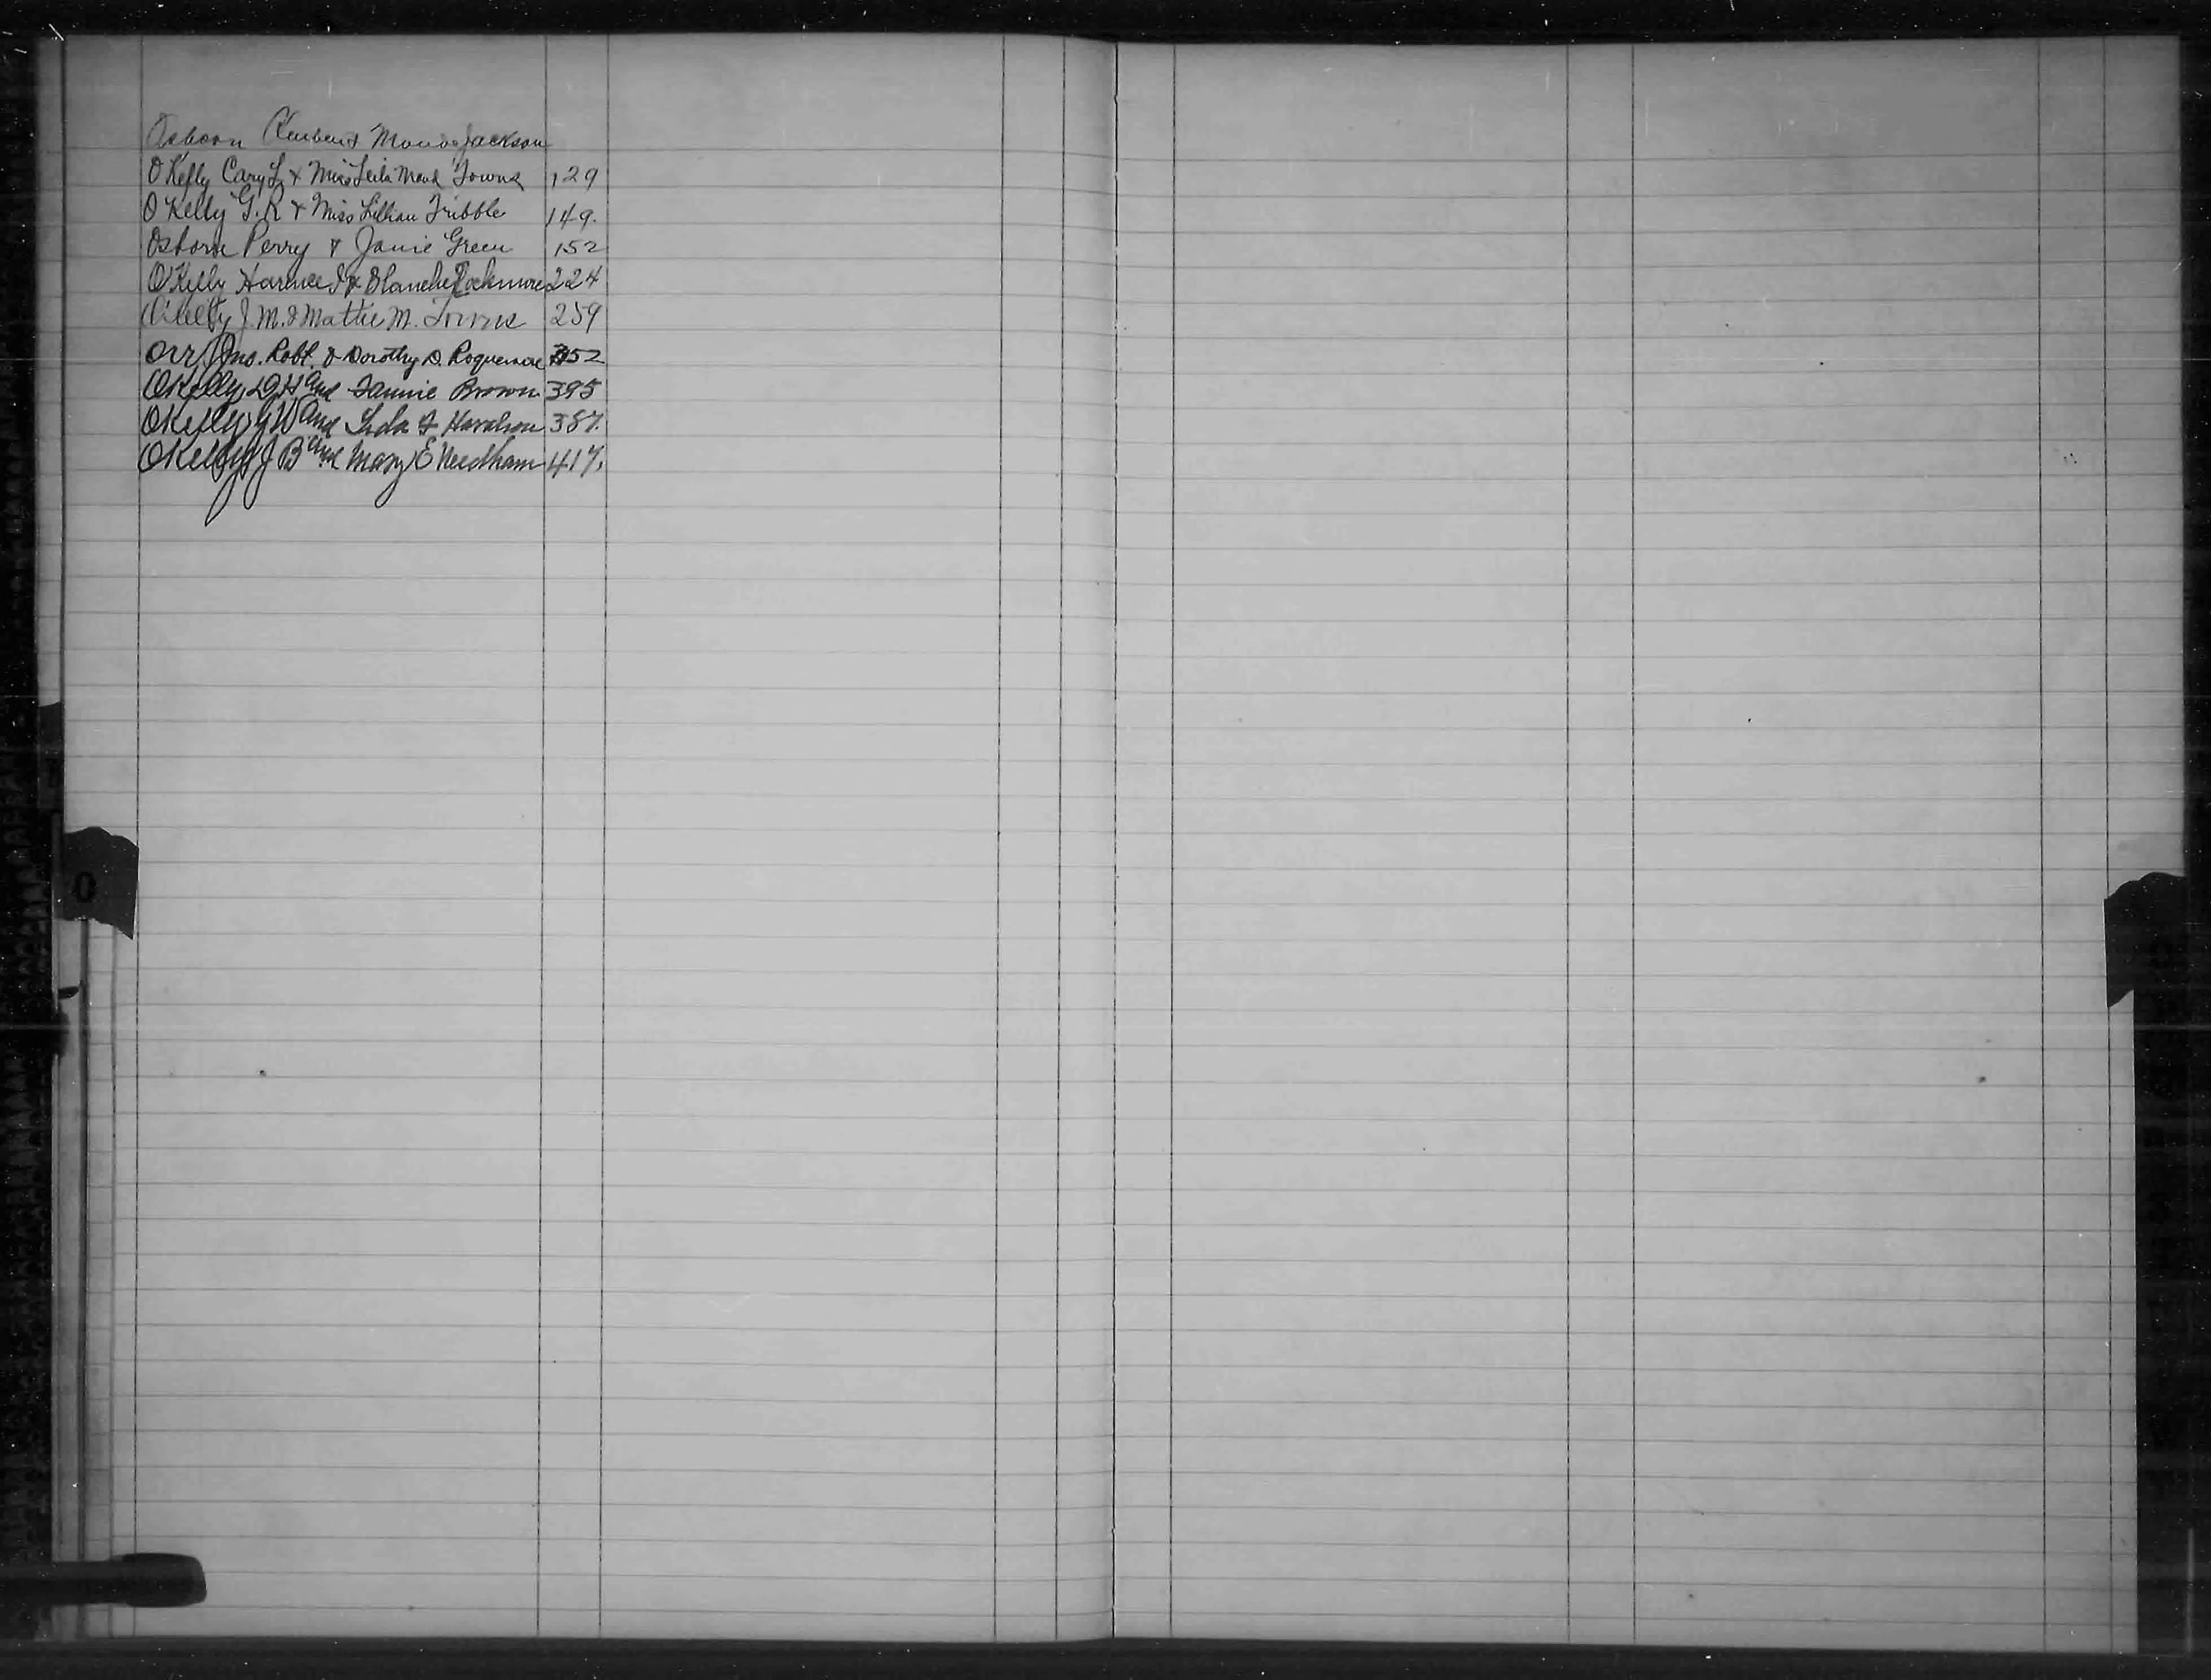 Osborn Reuben & Maude Jackson
O Kelly Cary L & Miss Leila Maud Towns 129
O Kelly G. R & Miss Lillian Tribble 149.
Osborn Perry & Janie Green 152
O'Kelly & Blanche Rockmore 224
O'Kelly J. M. & Mattie M. Towns 259
Orr Jno. Robt. & Dorothy D. Roquemore 352
OKelly and Fannie Brown 395
OKelly, G W and Haralson 387.
OKelly, J B and Mary E Needham 417.
O